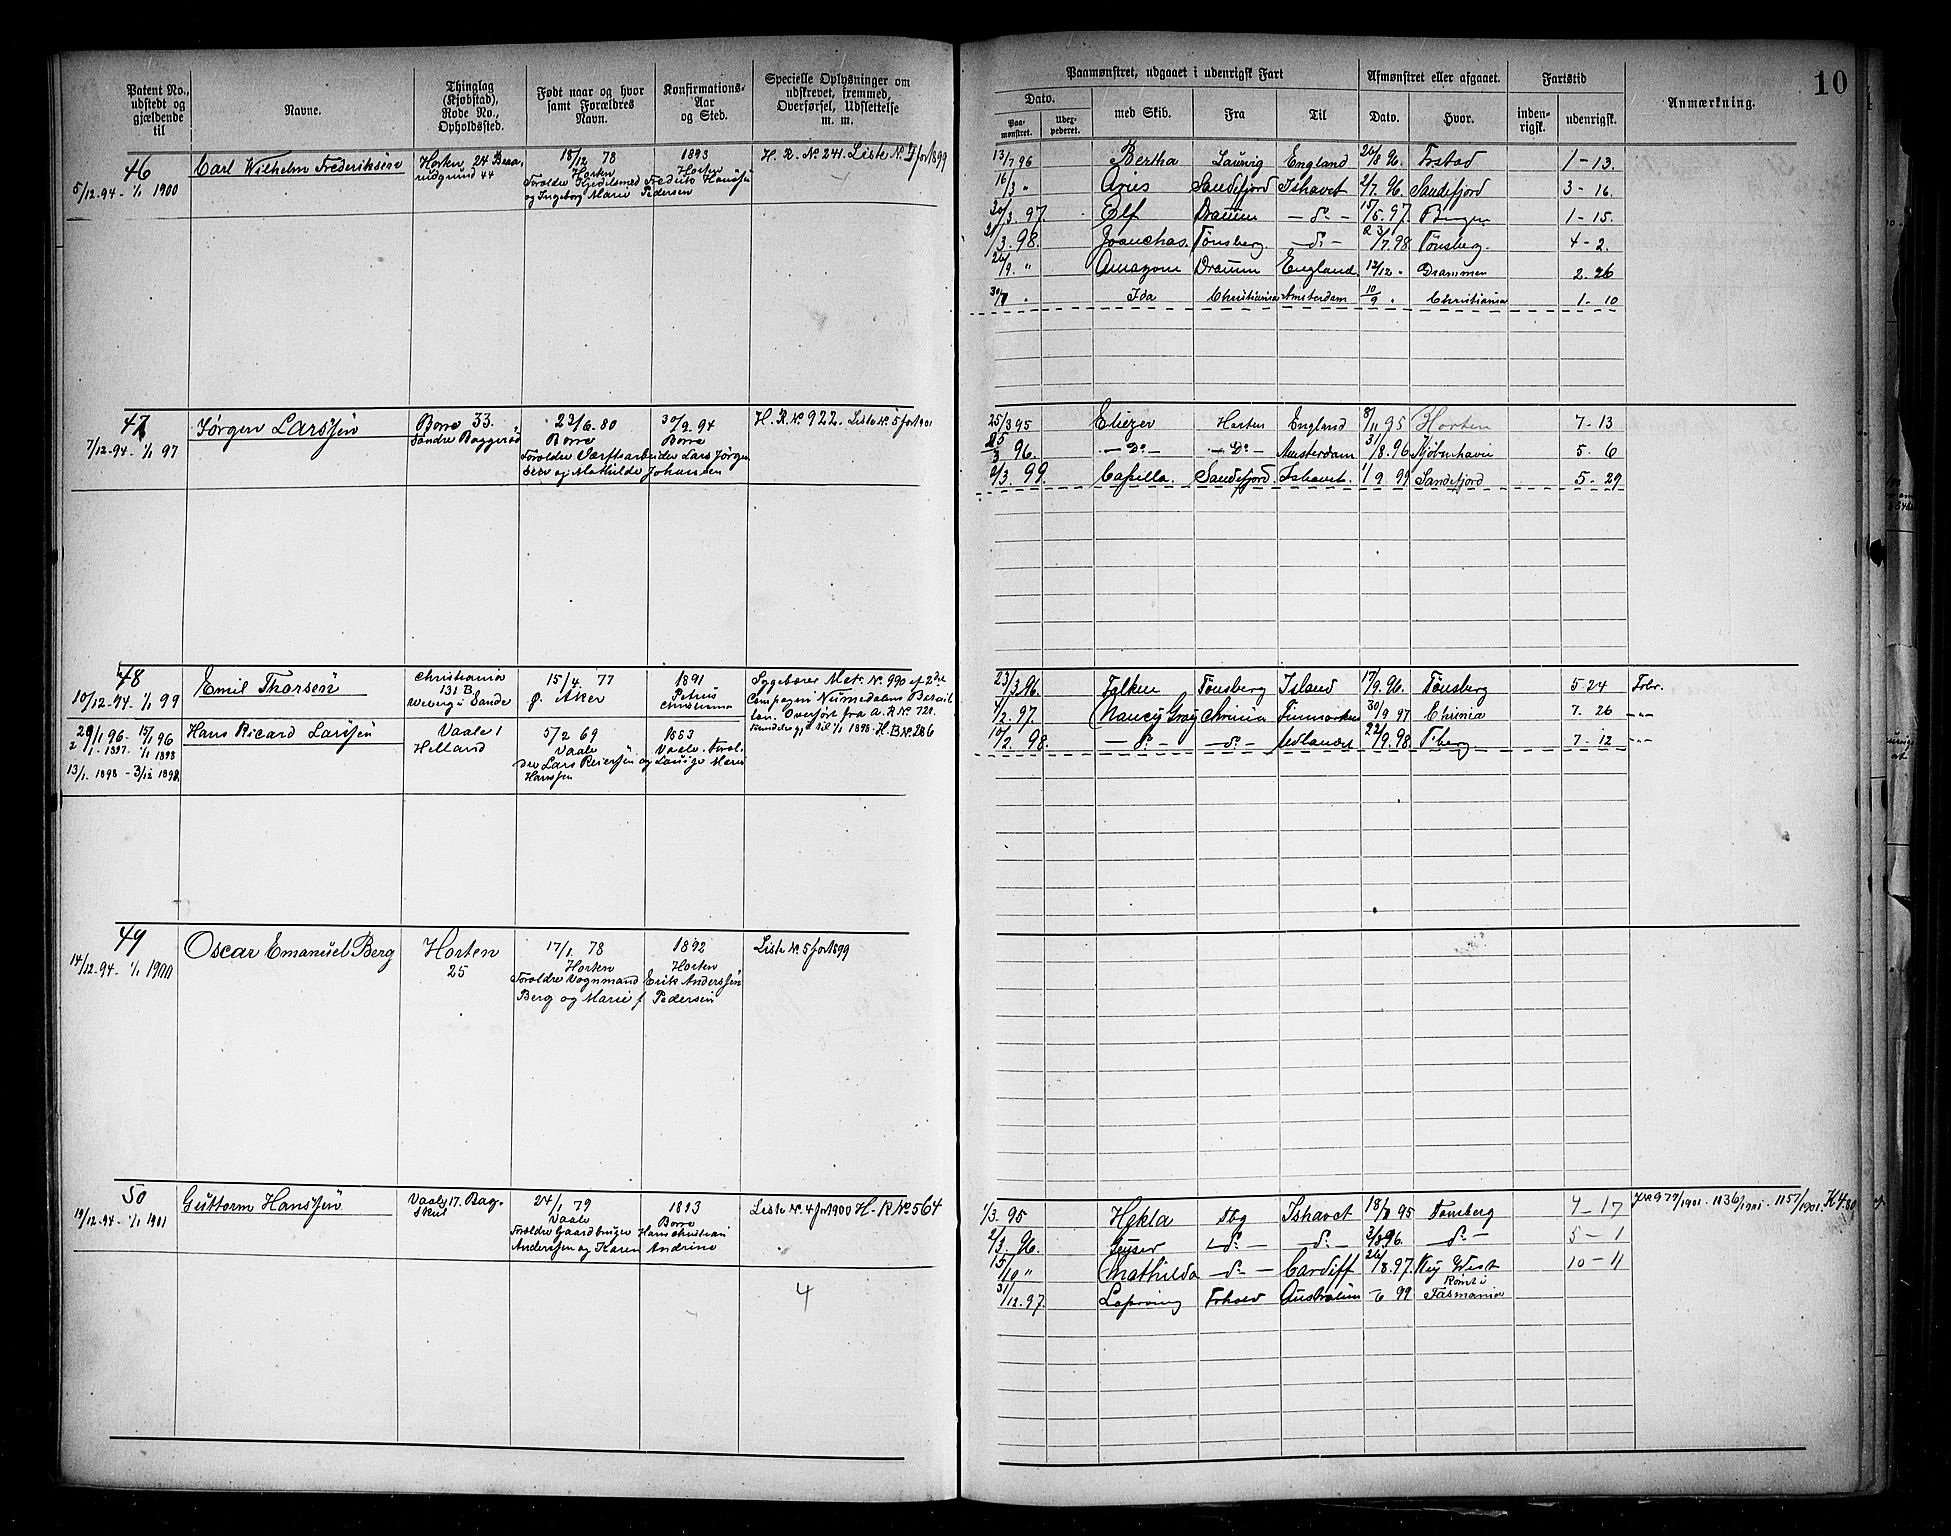 Patent No., udstedt og gjældende til
Navne.
Thinglag (Kjøbstad), Rode No., Opholdssted.
Født naar og hvor samt Forældres Navn.
Konfirmations-Aar og Sted.
Specielle Oplysninger om udskrevet, fremmed, Overførsel, Udslettelse m. m.
Paamønstret, udgaaet i udenrigsk Fart
Afmønstret eller afgaaet.
Fartstid
Anmærkning.
10
Dato.
Paa-mønstret.
Udex-pederet.
med Skib.
Fra
Til
Dato.
Hvor.
inden-rigsk.
udenrigsk.
46
5/12-94 - 1/1 1900
Carl Wilhelm Frederiksen
Horten 24
44
18/12 78
Horten
1893
Horten
Forældre Kjedelsmed Fredrik Hansen
og Ingeborg Marie Pedersen
H. R. No 241. Liste No for 1899
13/7 96 Bertha Laurvig England 26/8 96. Frstad 1-13.
16/3 " Aries Sandefjord Ishavet 2/7. 96. Sandefjord 3-16.
20/3. 97. Elf Dramm — do — 15/5. 97. Bergen 1-15.
2/3. 98. Tønsberg. — do — 23/7. 98. Tønsberg. 4-2.
26/9. " Amazone Dramm England 12/12 " Drammen 2. 26
30/7 " Ida Christiania Amsterdam 10/9 " Christiania 1-10
47
7/12-94 - 1/1 97
Jørgen Larssen
Borre 33.
Søndre Baggerød
23/6. 80
Borre
30/9. 94
Borre
Forældre Værftsarbeider Lars Jørgen
sen og Mathilde Johansen
H. R. No 922. Liste No 5 for 1901
25/3 95 Eliezer Horten England 8/11 95 Horten 7-13
25/3 96. — Do — — Do — Amsterdam 31/8. 96 Kjøbenhavn 5. 6
2/3. 99. Capella. Sandefjord. Ishavet. 1/9. 99 Sandefjord 5-29
48
10/12-94. 1/1 99
Emil Thorsen
Christiania
131 B.
15/4 77
Aker
1891
Petrus
Christiania
Sygebærer Mtr. No 990 af 2det
Compagni Numedalens Batail
lon. Overført fra A. R No 720.
1/1 1898 - H. B No 286
29/1 96 - 15/1 96
2/1. 1897. 1/1 1898
13/1. 1898 - 3/12 1898.
Hans Ricard Larssen
Vaale 1
Helland
5/2 69
Vaale
1883
Vaale. Foræl-
dre Lars Reierssen og Lovise Marie
Hanssen
23/3 96. Falken Tønsberg Island 17/9. 96. Tønsberg 5-24 Forbr.
4/2. 97. Nancy Gray Chrinia Finmarken 30/9 97 Chrinia 7. 26 -"-
10/2. 98. — do — — do — 22/9. 98. T'berg 7-12 -"-
49
14/12-94 - 1/1 1900
Oscar Emanuel Berg
Horten
25
17/1. 78
Horten
1892
Horten
Forældre Vognmand Erik Anderssen
Berg og Marie f. Pedersen
Liste No. 5 for 1899
50
19/12-94 - 1/1 1901
Guttorm Hanssen
Vaale 17. Bag-
skul
24/1 79
Vaale
1893
Borre
Forældre Gaardbruger Hans Christian
Anderssen og Karen Andrine
Liste No. 4 for 1900 H-R No 564
4
1/3. 95 Hekla Tbg Ishavet 18/8 95 Tønsberg 4-17
2/3. 96. Geyser — do — — do — 2/8 96. — do — 5-1
15/10 " Mathilda — do — Cardiff 26/8. 97. Key West 10-11
31/12. 97. Lapwing Frhald Australien 99 Rømt i Tasmania
J No 977/1901. 1136/1901. 1157/1901. K 4.80